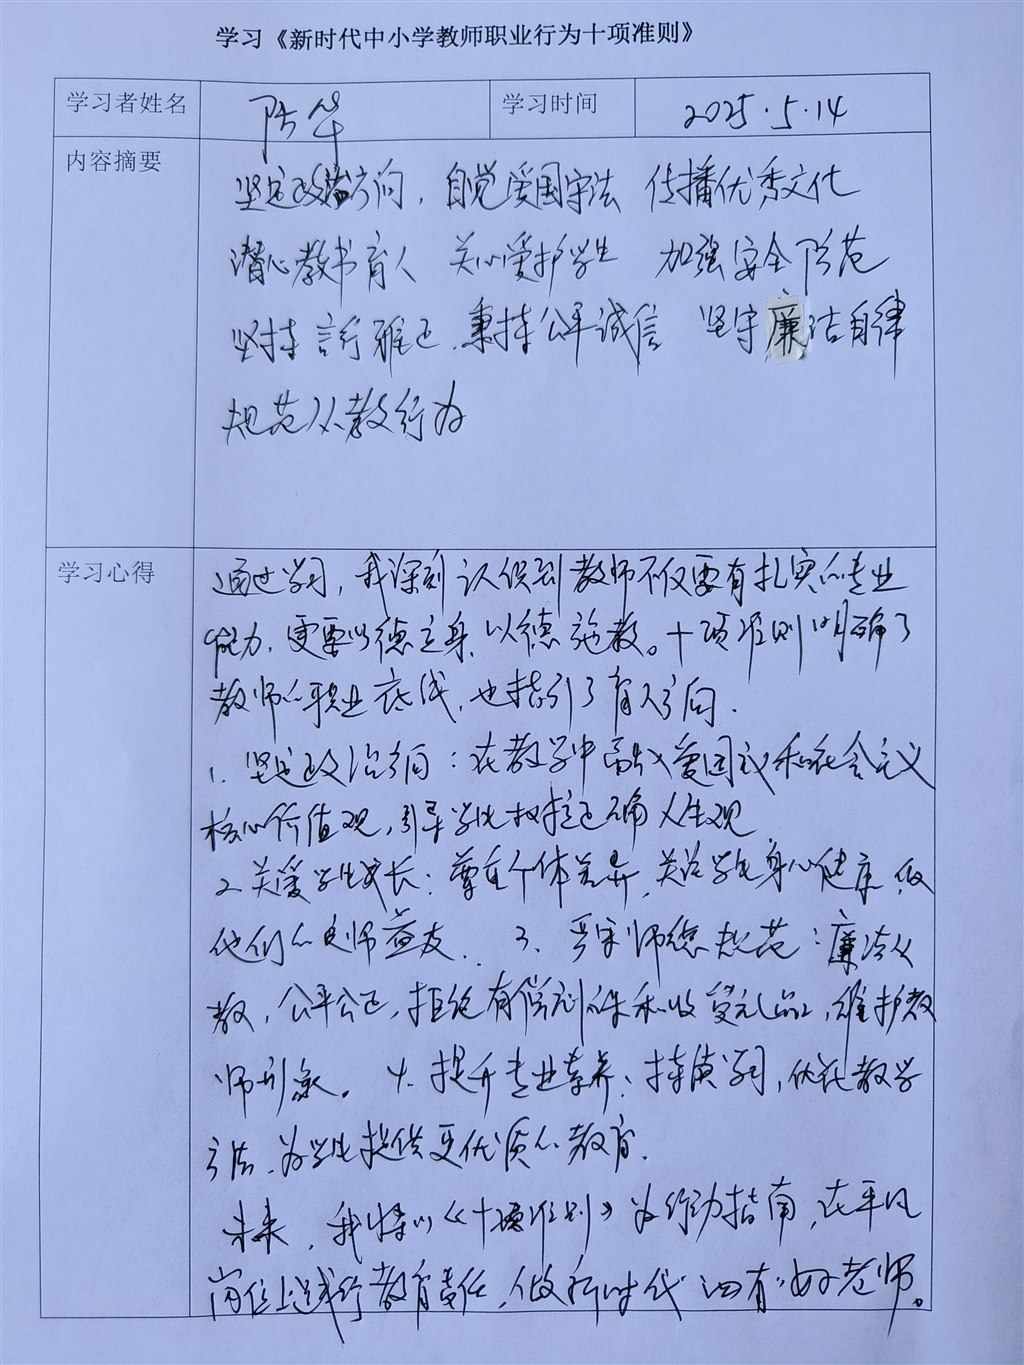 学习《新时代中小学教师职业行为十项准则》
学习者姓名 陈华 学习时间 2025.5.14
内容摘要
坚定政治方向，自觉爱国守法 传播优秀文化
潜心教书育人 关心爱护学生 加强安全防范
坚持言行雅正、秉持公平诚信 坚守廉洁自律
规范从教行为
学习心得
通过学习，我深刻认识到教师不仅要有扎实的专业
能力，更要以德立身，以德施教。十项准则明确了
教师的职业底线，也指引了育人方向.
1. 坚定政治方向：在教学中融入爱国主义和社会主义
核心价值观，引导学生树立正确人生观
2. 关爱学生成长：尊重个体差异，关注学生身心健康，做
他们的良师益友. 3、严守师德规范：廉洁从
教，公平公正，拒绝有偿补课和收受礼品，维护教
师形象。 4. 提升专业素养：持续学习，优化教学
方法、为学生提供更优质的教育.
未来，我将以《十项准则》为行动指南，在平凡
岗位上践行教育责任，做新时代"四有"好老师。